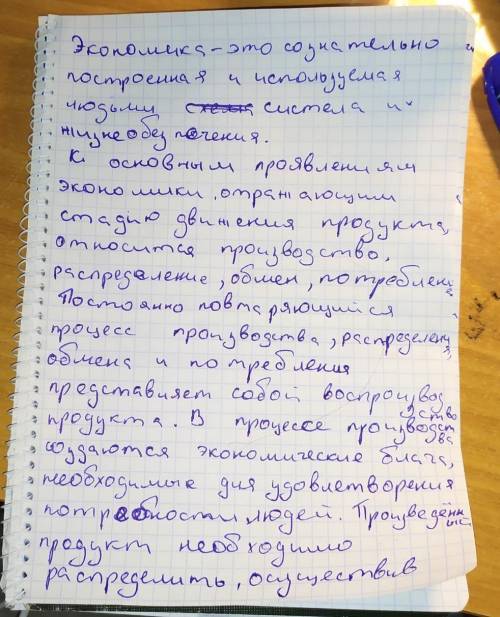 Экономика - это сознательно
построенная и используемая
людьми система их
жизнеобезпечения.
К основным проявлениям
экономики, отражающим
стадию движения продукта,
относится производство,
распределение, обмен, потребление
Постоянно повторяющийся
процесс производства, распределения,
обмена и потребления
представляет собой воспроизводство
продукта. В процессе производства
создаются экономические блага,
необходимые для удовлетворения
потребностилюдей. Произведённый
продукт необходимо
распределить, осуществив